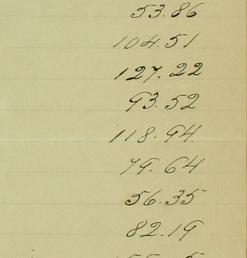 53.86
104.51
127.22
93.52
118.94
79.64
56.35
82.19